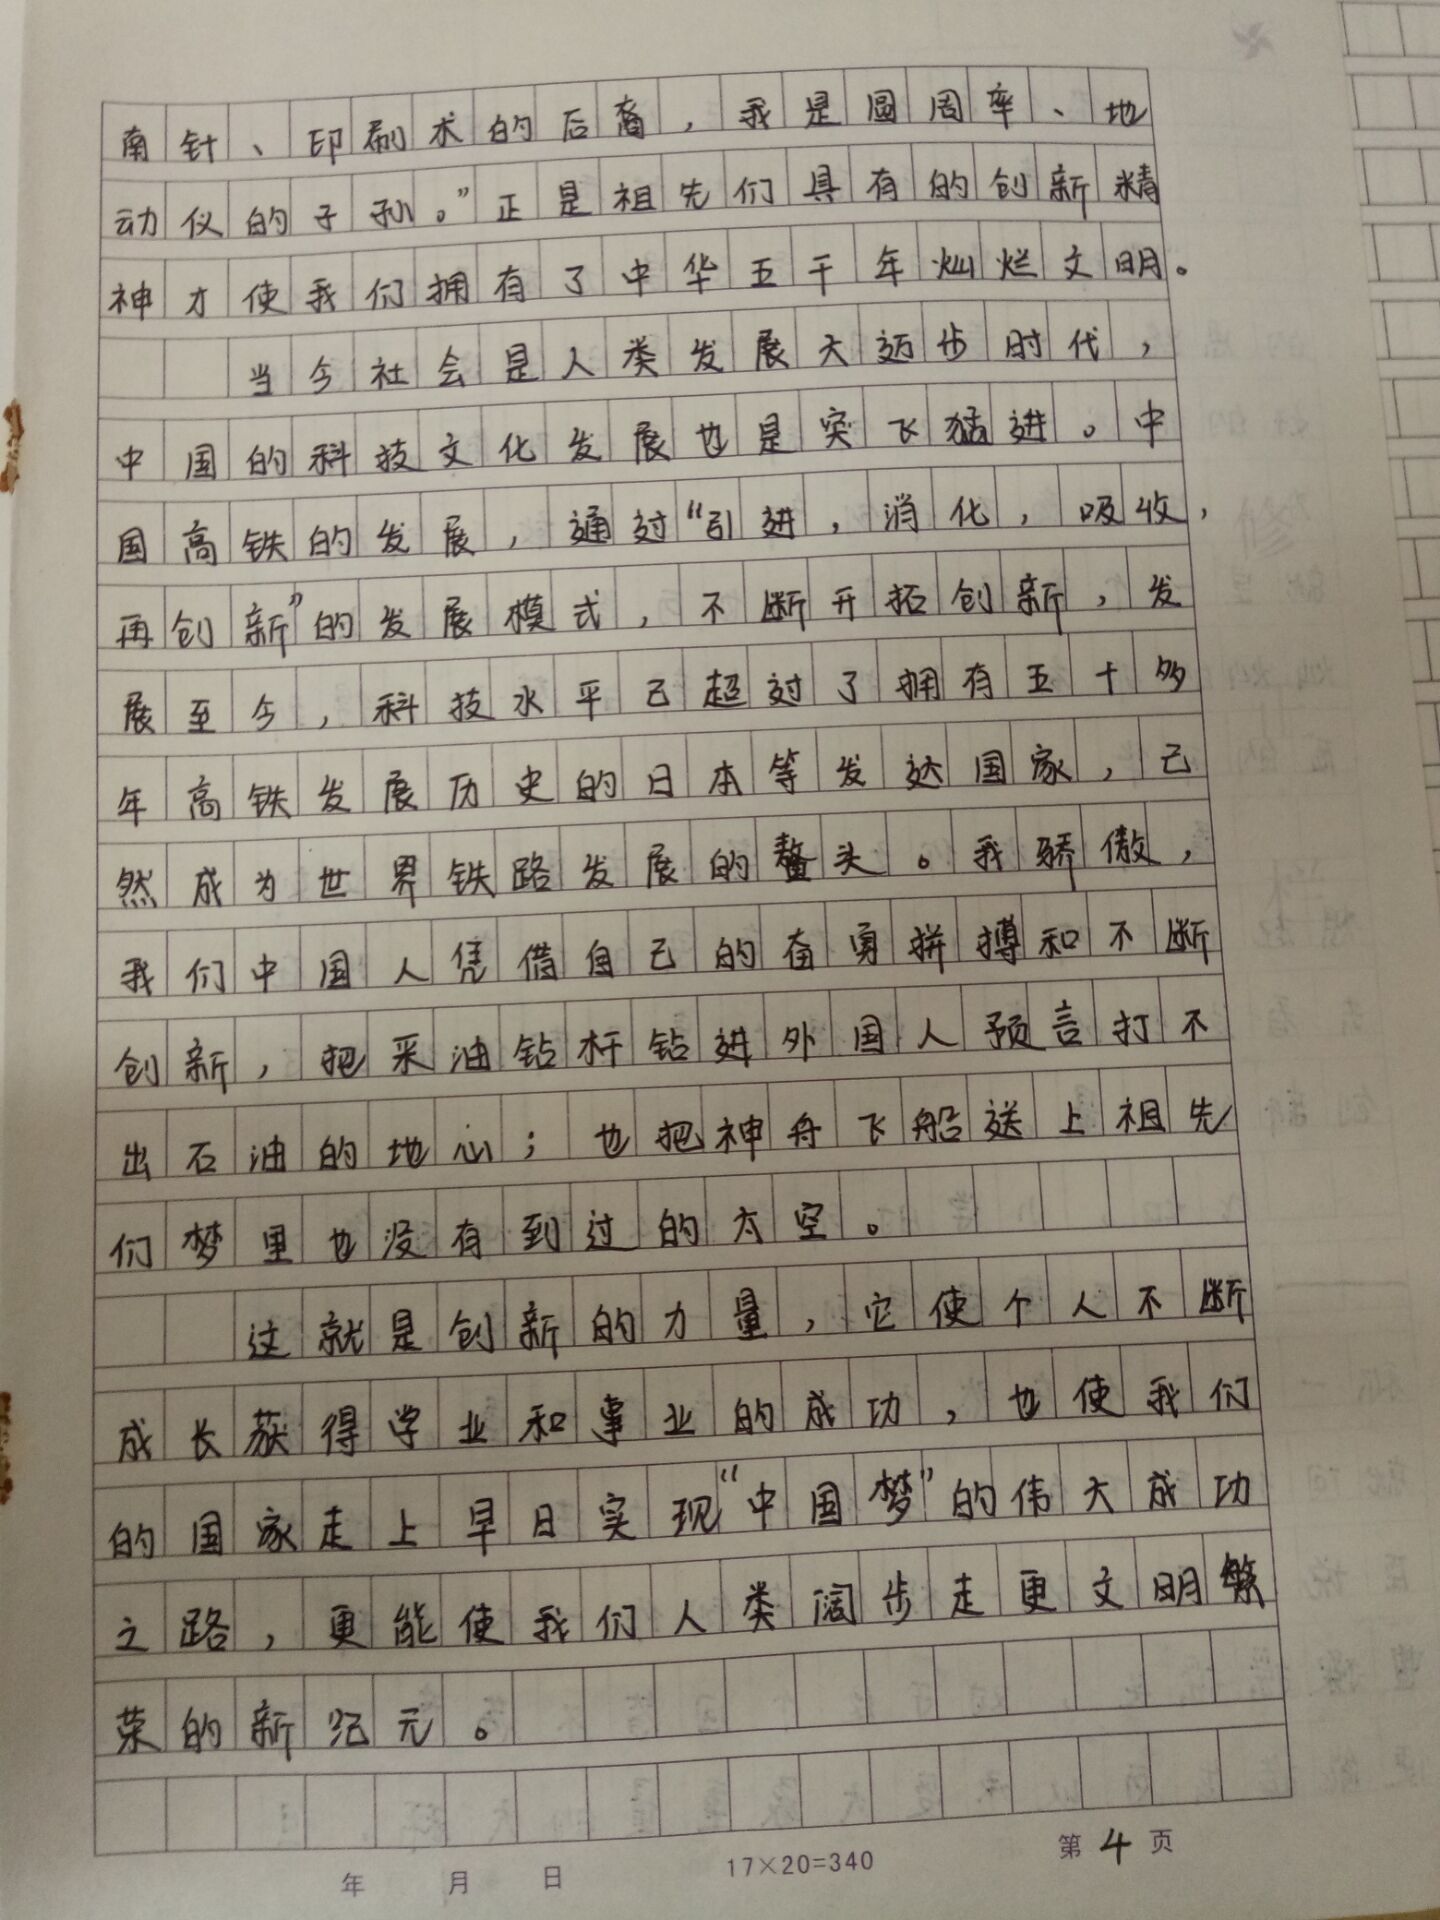 南针、印刷术的后裔，我是圆周率、地
动仪的子孙。”正是祖先们具有的创新精
神才使我们拥有了中华五千年灿烂文明。
当今社会是人类发展大迈步时代，
中国的科技文化发展也是突飞猛进。中
国高铁的发展，通过“引进，消化，吸收，
再创新”的发展模式，不断开拓创新，发
展至今，科技水平已超过了拥有五十多
年高铁发展历史的日本等发达国家，已
然成为世界铁路发展的鳌头。我骄傲，
我们中国人凭借自己的奋勇拼搏和不断
创新，把采油钻杆钻进外国人预言打不
出石油的地心；也把神舟飞船送上祖先
们梦里也没有到过的太空。
这就是创新的力量，它使个人不断
成长获得学业和事业的成功，也使我们
的国家走上早日实现“中国梦”的伟大成功
之路，更能使我们人类阔步走更文明繁
荣的新纪元。
年 月 日 17×20=340 第4页